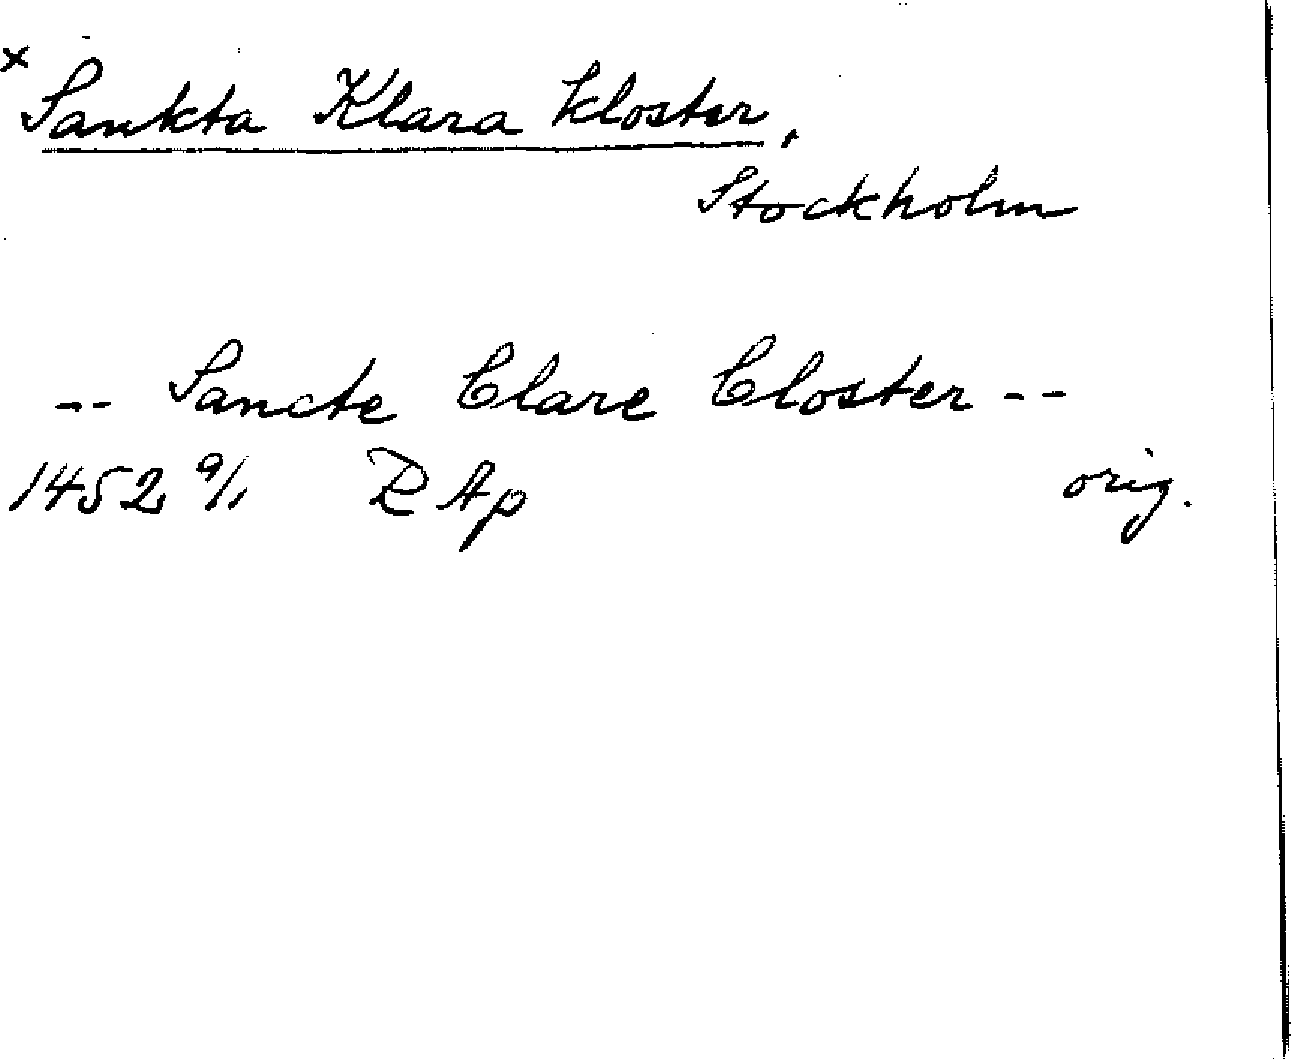 x Sankta Klara kloster,
Stockholm
-- Sancte Clare Closter --
1452 9/1 RAp orig.